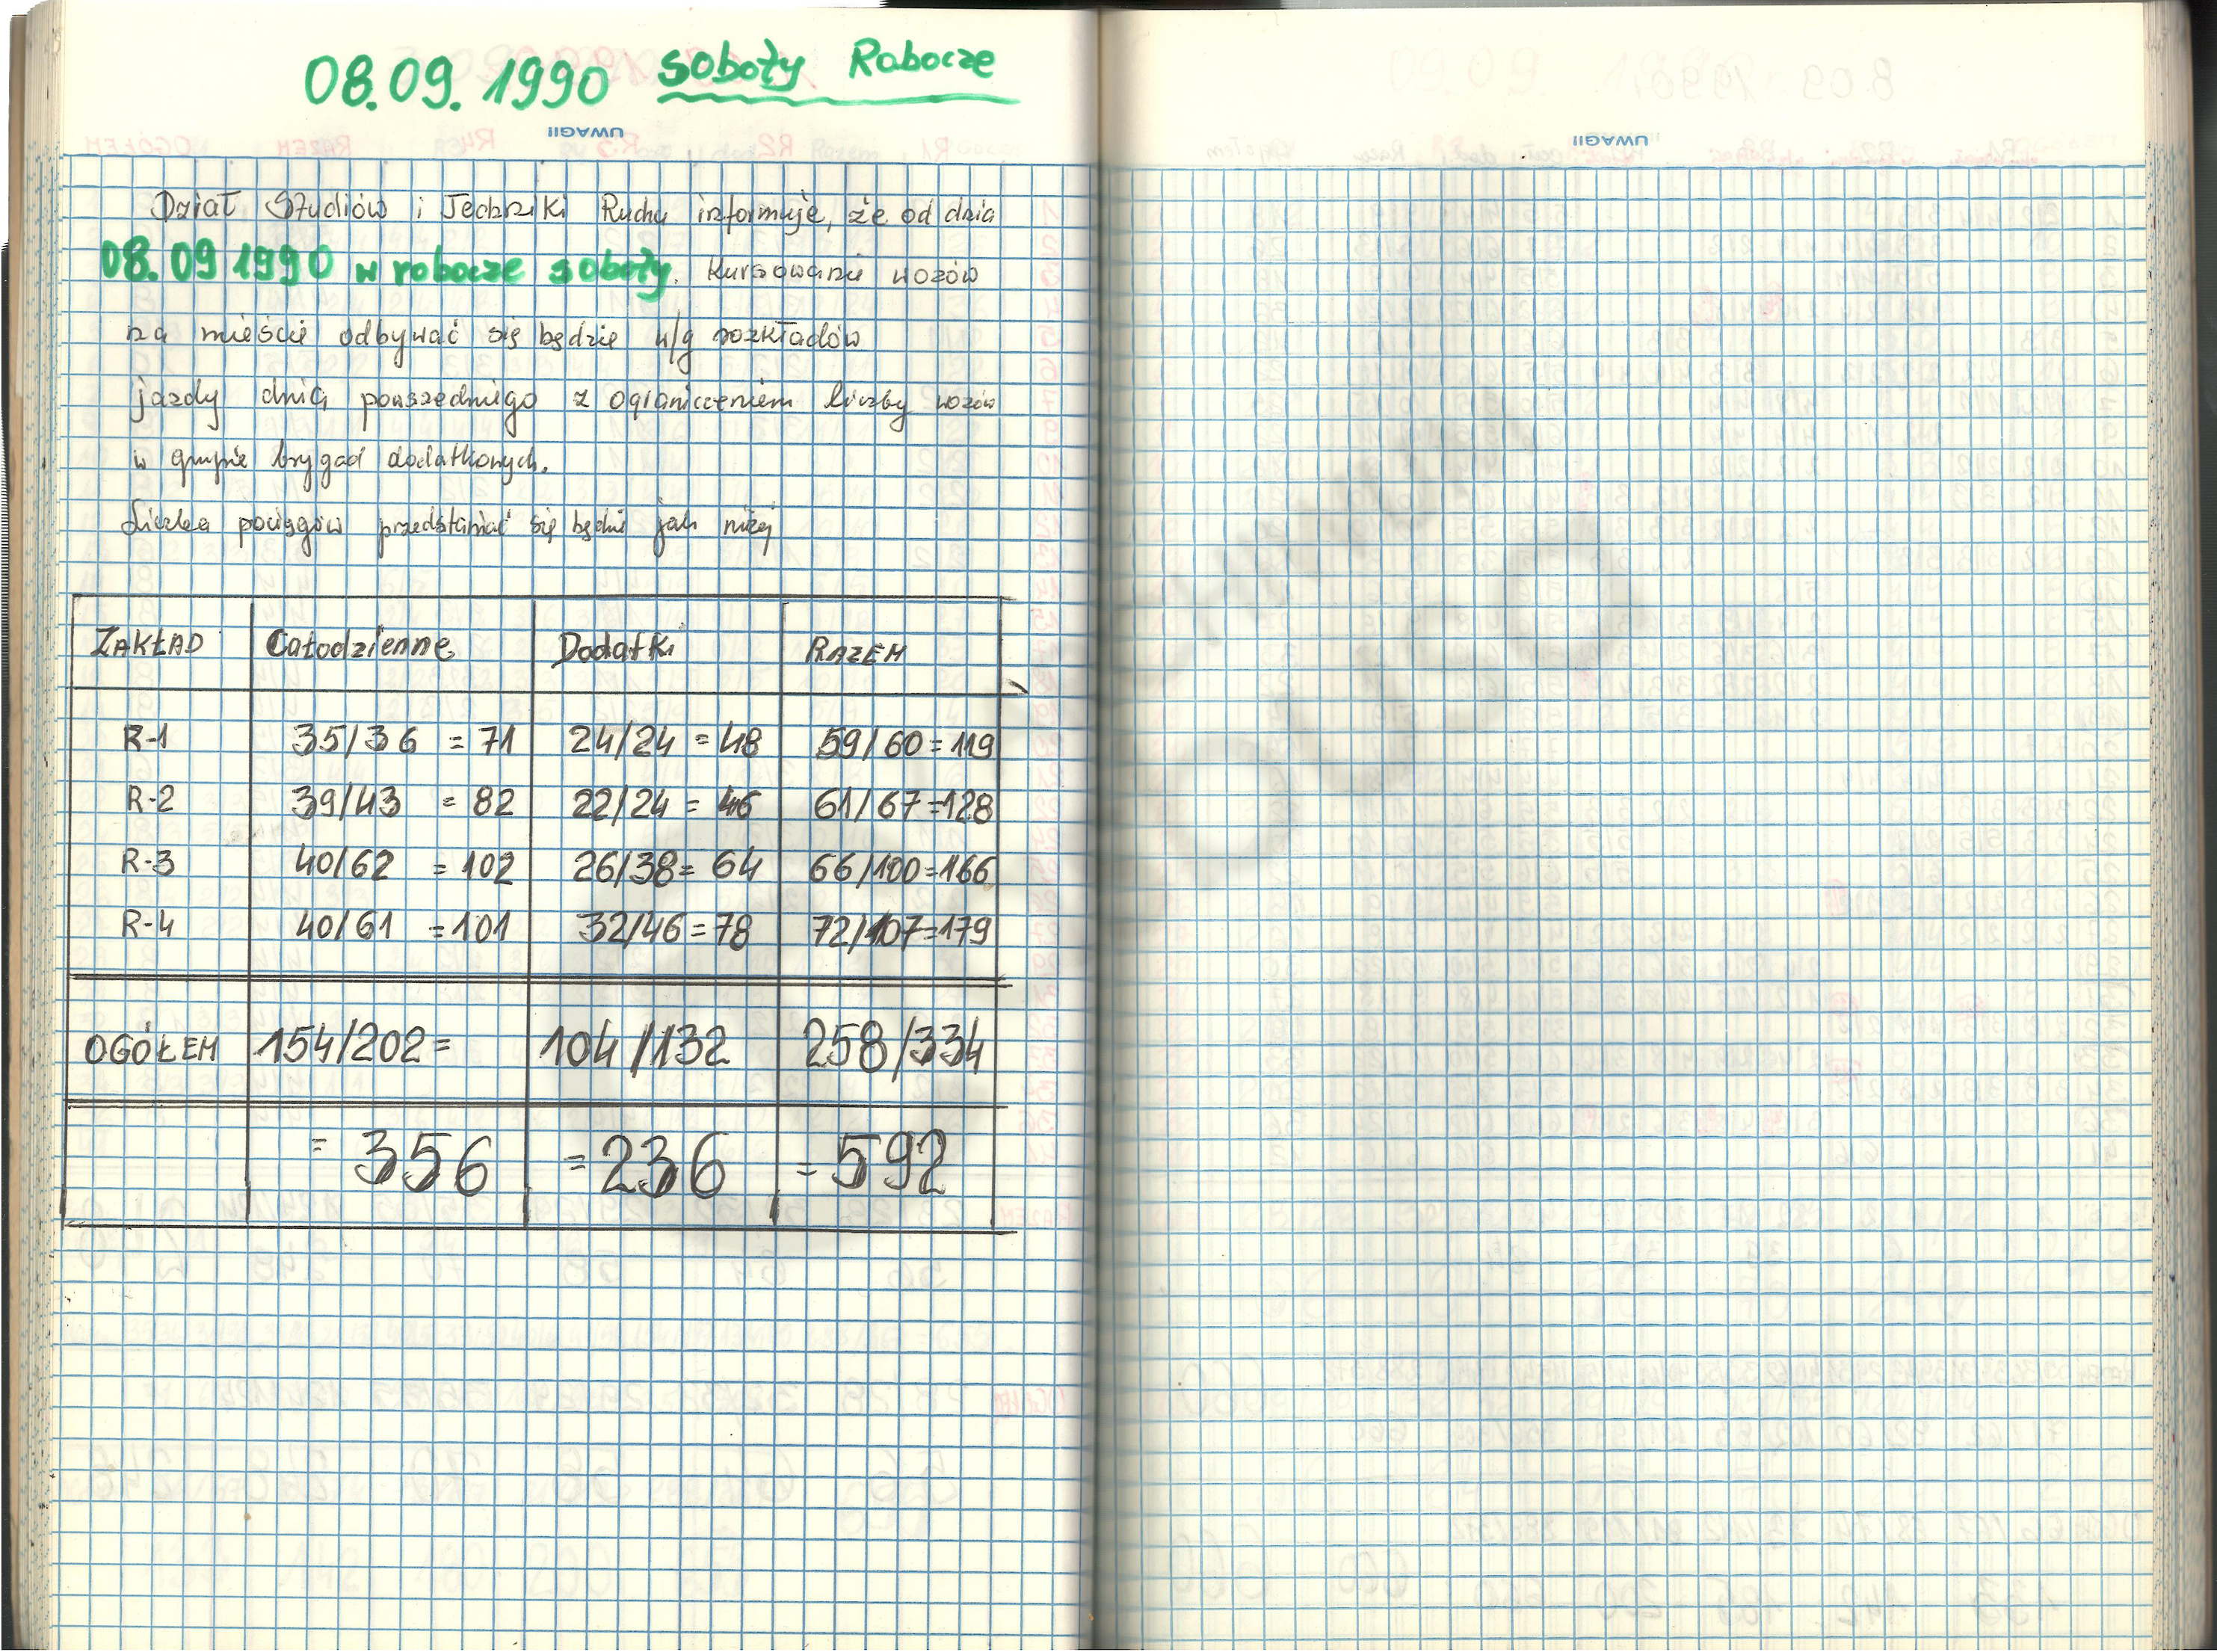 08.09.1990 soboty Robocze
UWAGI!
Dział Studiów i Techniki Ruchu informuje, że od dnia
08.09 1990 w robocze soboty. Kursowanie wozów
na mieście odbywać się będzie w/g rozkładów
jazdy dnia powszedniego z ograniczeniem liczby wozów
w grupie brygad dodatkowych.
Liczba pociągów przedstawiać się będzie jak niżej
ZAKŁAD Całodzienne Dodatki RAZEM
R-1 35/36 = 71 24/24 = 48 59/60 = 119
R-2 39/43 = 82 22/24 = 46 61/67 = 128
R-3 40/62 = 102 26/38 = 64 66/100 = 166
R-4 40/61 = 101 32/46 = 78 72/107 = 179
OGÓŁEM 154/202 = 104/132 258/334
= 356 = 236 = 592
UWAGI!